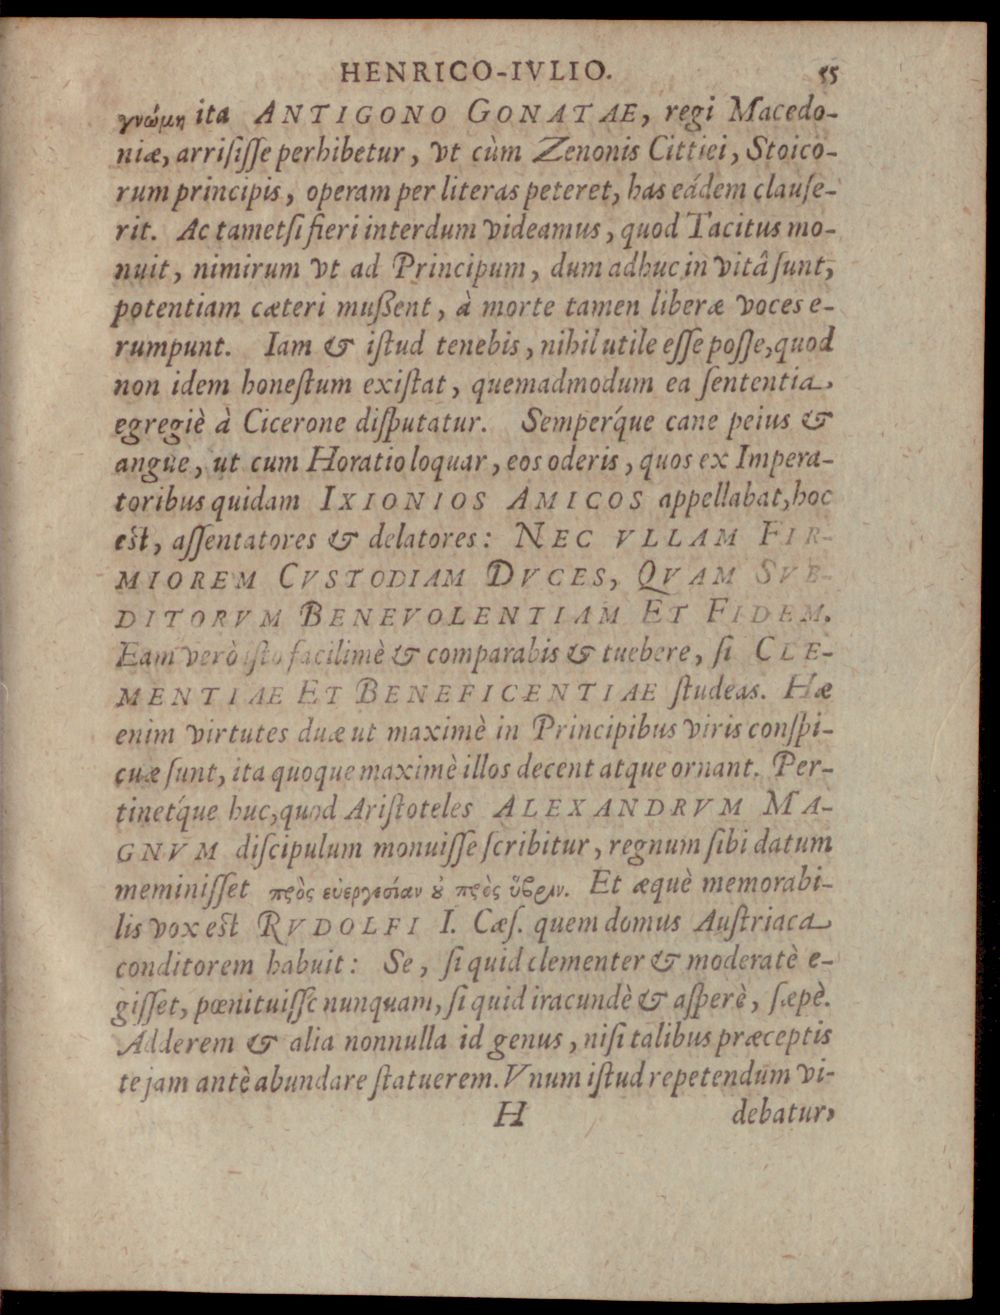 HENRICO-IVLIO. 55
γνώμη ita ANTIGONO GONATAE, regi Macedo-
niæ, arriſiſſe perhibetur, vt cùm Zenonis Cittiei, Stoico-
rum principis, operam per literas peteret, has eâdem clauſe-
rit. Ac tametſi fieri interdum videamus, quod Tacitus mo-
nuit, nimirum vt ad Principum, dum adhuc in vitâ ſunt,
potentiam cæteri mußent, à morte tamen liberæ voces e-
rumpunt. Iam & iſtud tenebis, nihil utile eſſe poſſe, quod
non idem honeſtum exiſtat, quemadmodum ea ſententia
egregiè à Cicerone diſputatur. Semperq́ue cane peius &
angue, ut cum Horatio loquar, eos oderis, quos ex Impera-
toribus quidam IXIONIOS AMICOS appellabat, hoc
eſt, aſſentatores & delatores: NEC VLLAM FIR-
MIOREM CVSTODIAM DVCES, QVAM SVB-
DITORVM BENEVOLENTIAM ET FIDEM.
Eam verò iſto facilimè & comparabis & tuebere, ſi CLE-
MENTIAE ET BENEFICENTIAE ſtudeas. Hæ
enim virtutes duæ ut maximè in Principibus viris conſpi-
cuæ ſunt, ita quoque maximè illos decent atque ornant. Per-
tinetq́ue huc, quod Ariſtoteles ALEXANDRVM MA-
GNVM diſcipulum monuiſſe ſcribitur, regnum ſibi datum
meminiſſet πρὸς εὐεργεσίαν ȣ̓ πρὸς ὕβριν. Et æquè memorabi-
lis vox eſt RVDOLFI I. Cæſ. quem domus Auſtriaca
conditorem habuit: Se, ſi quid clementer & moderatè e-
giſſet, pœnituiſſe nunquam, ſi quid iracundè & aſperè, ſæpè.
Adderem & alia nonnulla id genus, niſi talibus præceptis
te jam antè abundare ſtatuerem. Vnum iſtud repetendum vi-
H debatur,